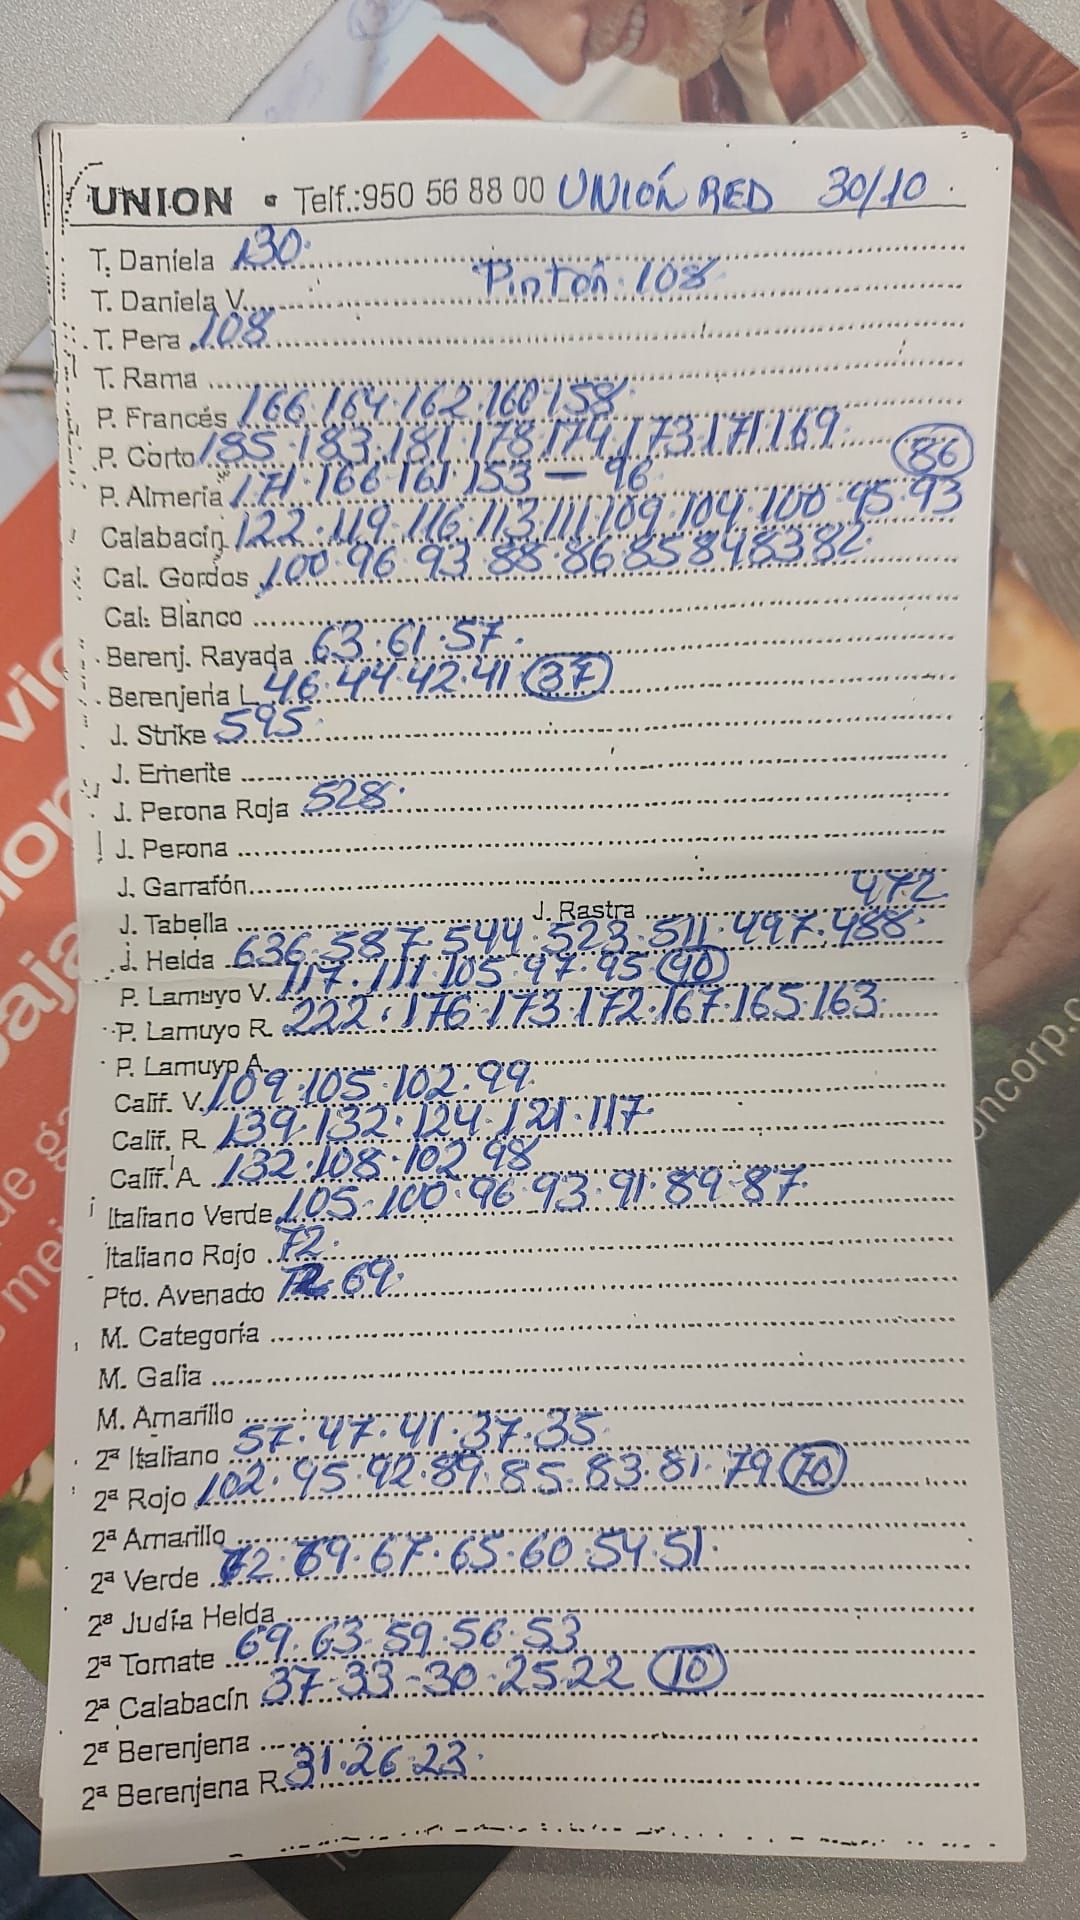 UNION • Telf.:950 56 88 00 UNIÓN RED 30/10
T. Daniela 130.
T. Daniela V. Pinton 108
T. Pera 108
T. Rama
P. Francés 166.164.162.160.158
P. Corto 185.183.181.178.174.173.171.169
P. Almería 171.166.161.153 — 96 86
Calabacín 122.119.116.113.111.109.104.100.95.93
Cal. Gordos 100.96.93.88.86.85.84.83.82
Cal. Blanco
Berenj. Rayada 63.61.57.
Berenjena L. 46.44.42.41 37
J. Strike 595.
J. Emerite
J. Perona Roja 528.
J. Perona
J. Garrafón
J. Tabella J. Rastra 472
J. Helda 636.587.544.523.511.497.488.
P. Lamuyo V. 117.111.105.97.95 90
P. Lamuyo R. 222.176.173.172.167.165.163.
P. Lamuyo A.
Calif. V. 109.105.102.99
Calif. R. 139.132.124.121.117
Calif. A. 132.108.102 98
Italiano Verde 105.100.96.93.91.89.87.
Italiano Rojo 72.
Pto. Avenado 72 69.
M. Categoría
M. Galia
M. Amarillo
2ª Italiano 57.47.41.37.35
2ª Rojo 102.95.92.89.85.83.81.79 70
2ª Amarillo
2ª Verde 72.69.67.65.60.54.51.
2ª Judía Helda
2ª Tomate 69.63.59.56.53
2ª Calabacín 37-33-30-25.22 10
2ª Berenjena
2ª Berenjena R. 31.26.23.